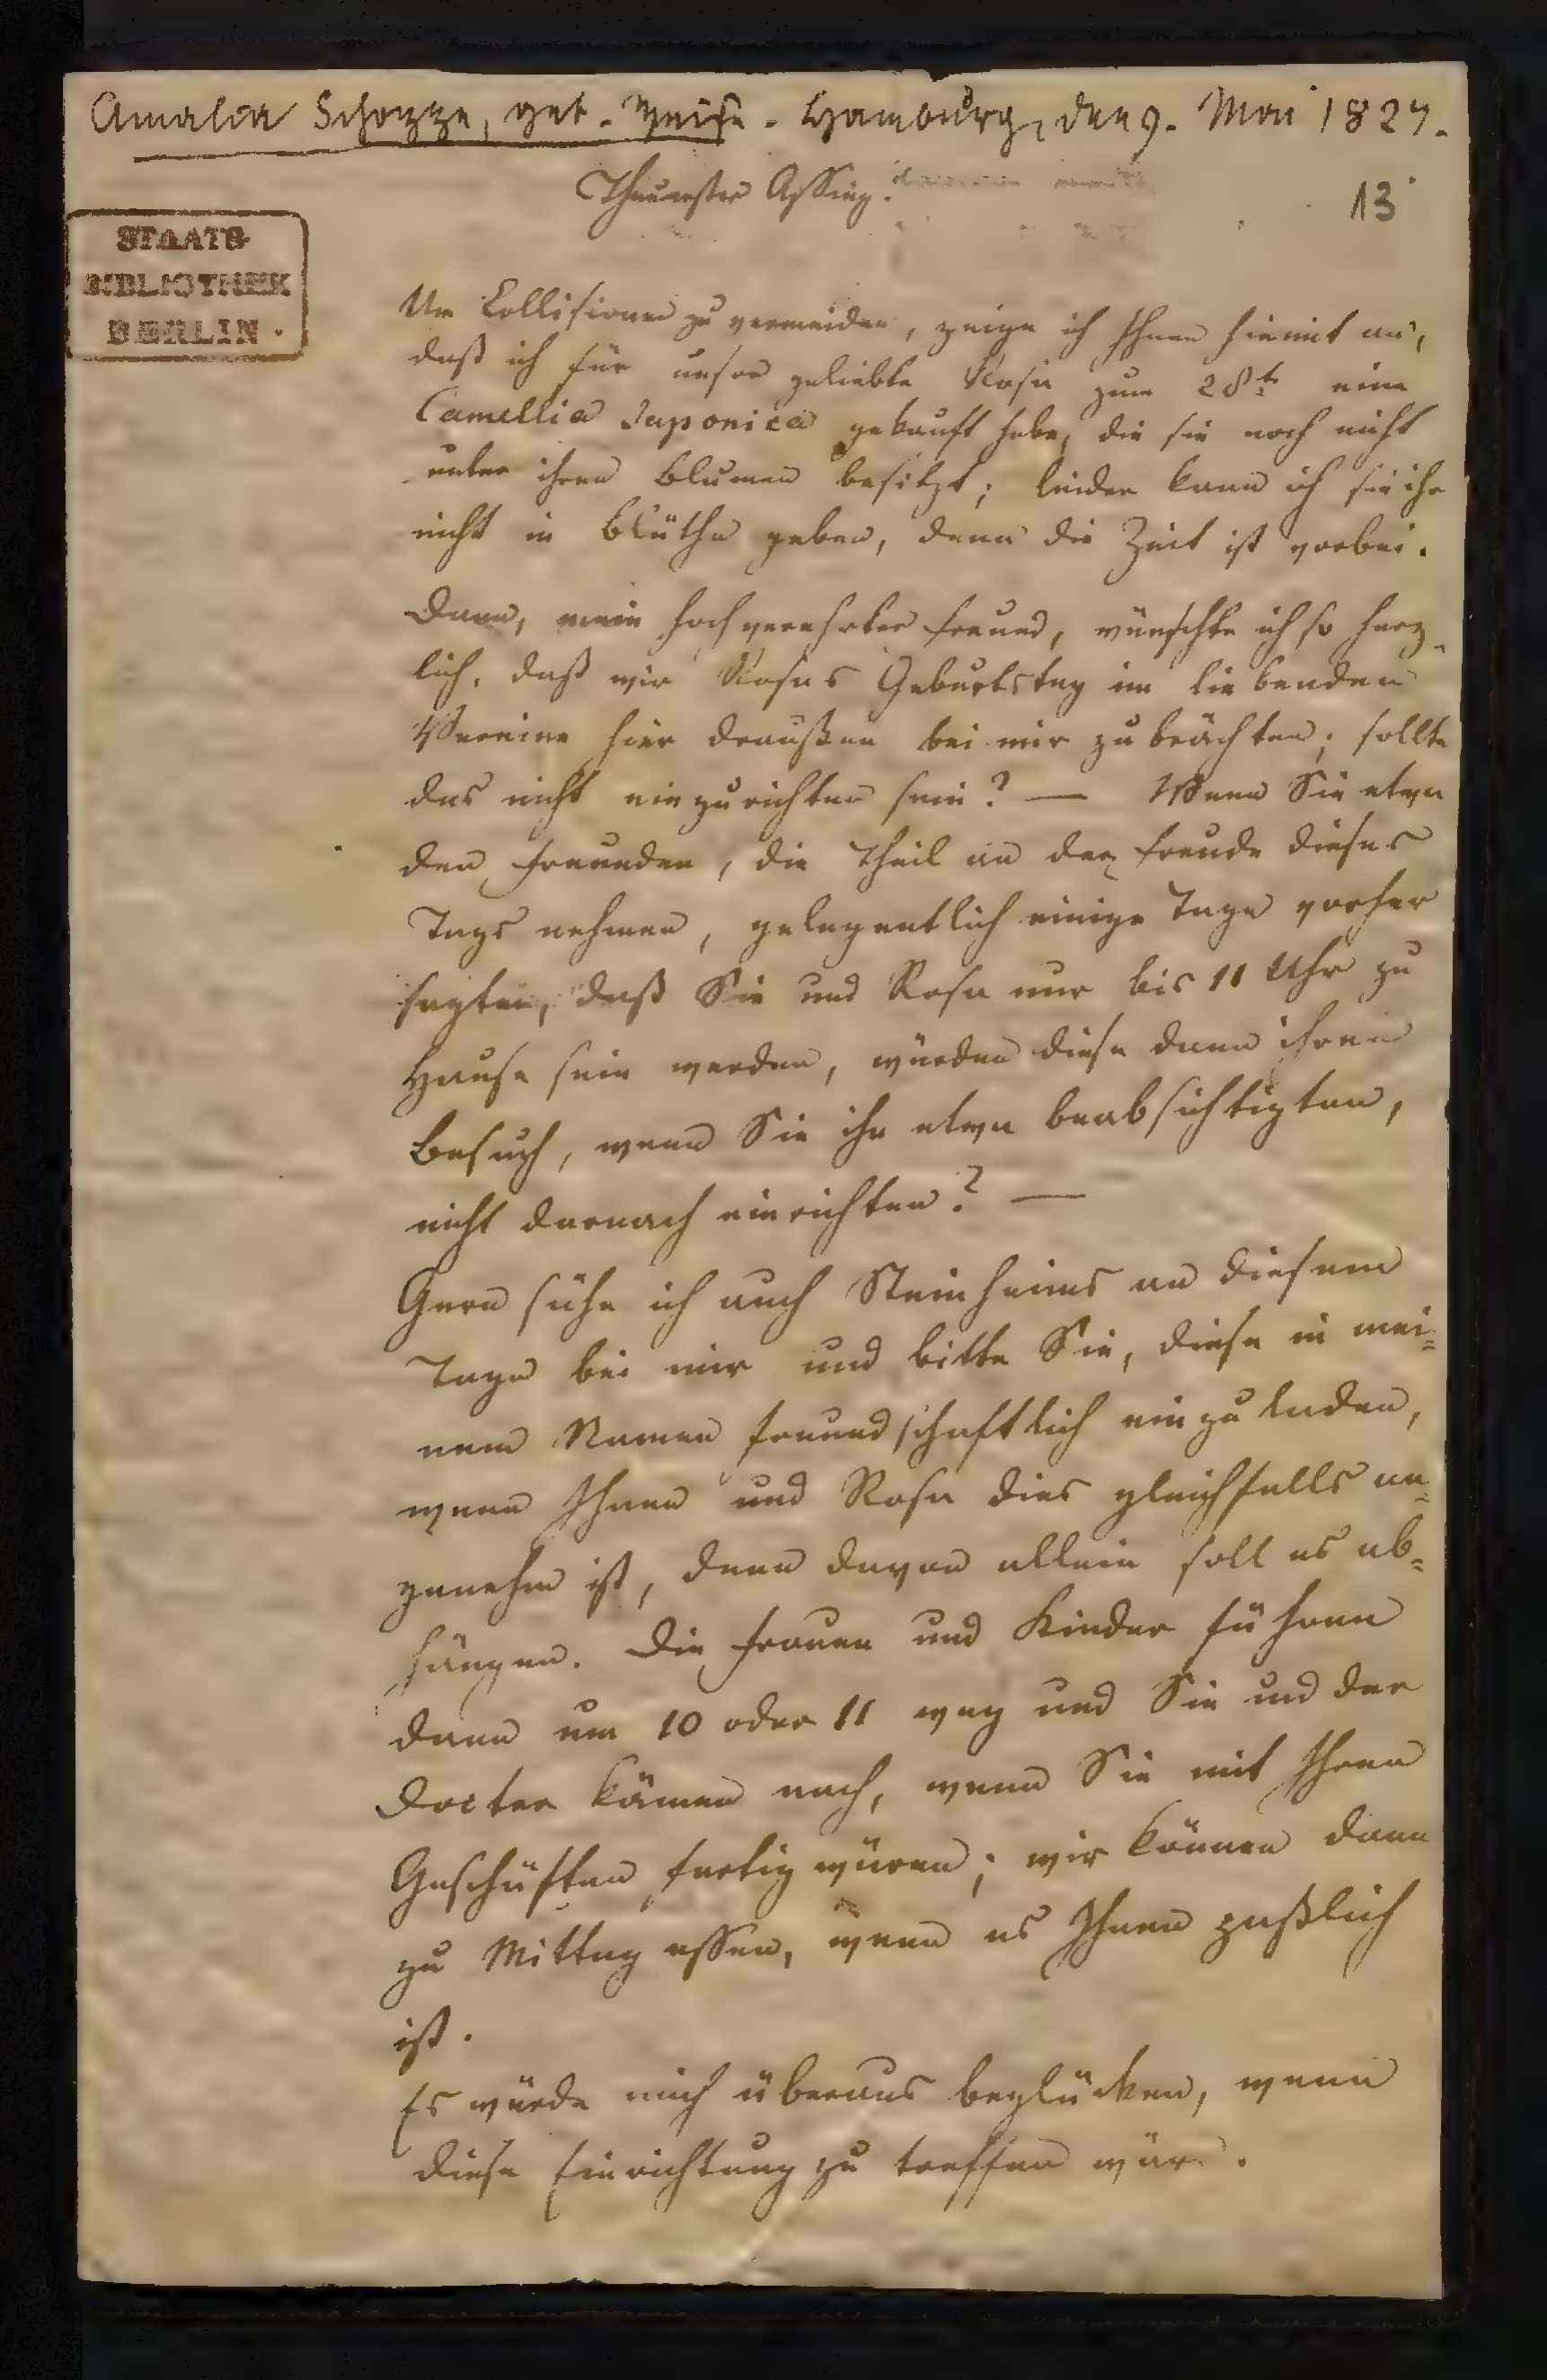 Amalia Schoppe, geb. Weise. Hamburg, den 9. Mai 1827.
13
Theuerster Assing!
STAATS
BIBLIOTHEK
BERLIN.
Um Collisionen zu vermeiden, zeige ich Ihnen hiemit an,
daß ich für unsere geliebte Rosa zum 28t eine
Camellia Japonica gekauft habe, die sie noch nicht
unter ihren Blumen besitzt; leider kann ich sie ihr
nicht in Blüthe geben, denn die Zeit ist vorbei.
Dann, mein hochverehrter Freund, wünschte ich so herz-
lich, daß wir Rosas Geburtstag im liebenden
Vereine hier draußen bei mir zubrächten; sollte
das nicht einzurichten sein? — Wenn Sie etwa
den Freunden, die Theil an der Freude dieses
Tags nehmen, gelegentlich einige Tage vorher
sagten, daß Sie und Rosa nur bis 11 Uhr zu
Hause sein werden, würden diese dann ihren
Besuch, wenn Sie ihn etwa beabsichtigten,
nicht darnach einrichten? —
Gern sähe ich auch Steinheims an diesem
Tage bei mir und bitte Sie, diese in mei=
nem Namen freundschaftlich einzuladen,
wenn Ihnen und Rosa dies gleichfalls an=
genehm ist, denn davon allein soll es ab=
hängen. Die Frauen und Kinder führen
dann um 10 oder 11 weg und Sie und der
Docter kämen nach, wenn Sie mit Ihren
Geschäften fertig wären; wir können dann
zu Mittag essen, wenn es Ihnen paßlich
ist.
Es würde mich überaus beglücken, wenn
diese Einrichtung zu treffen wäre.